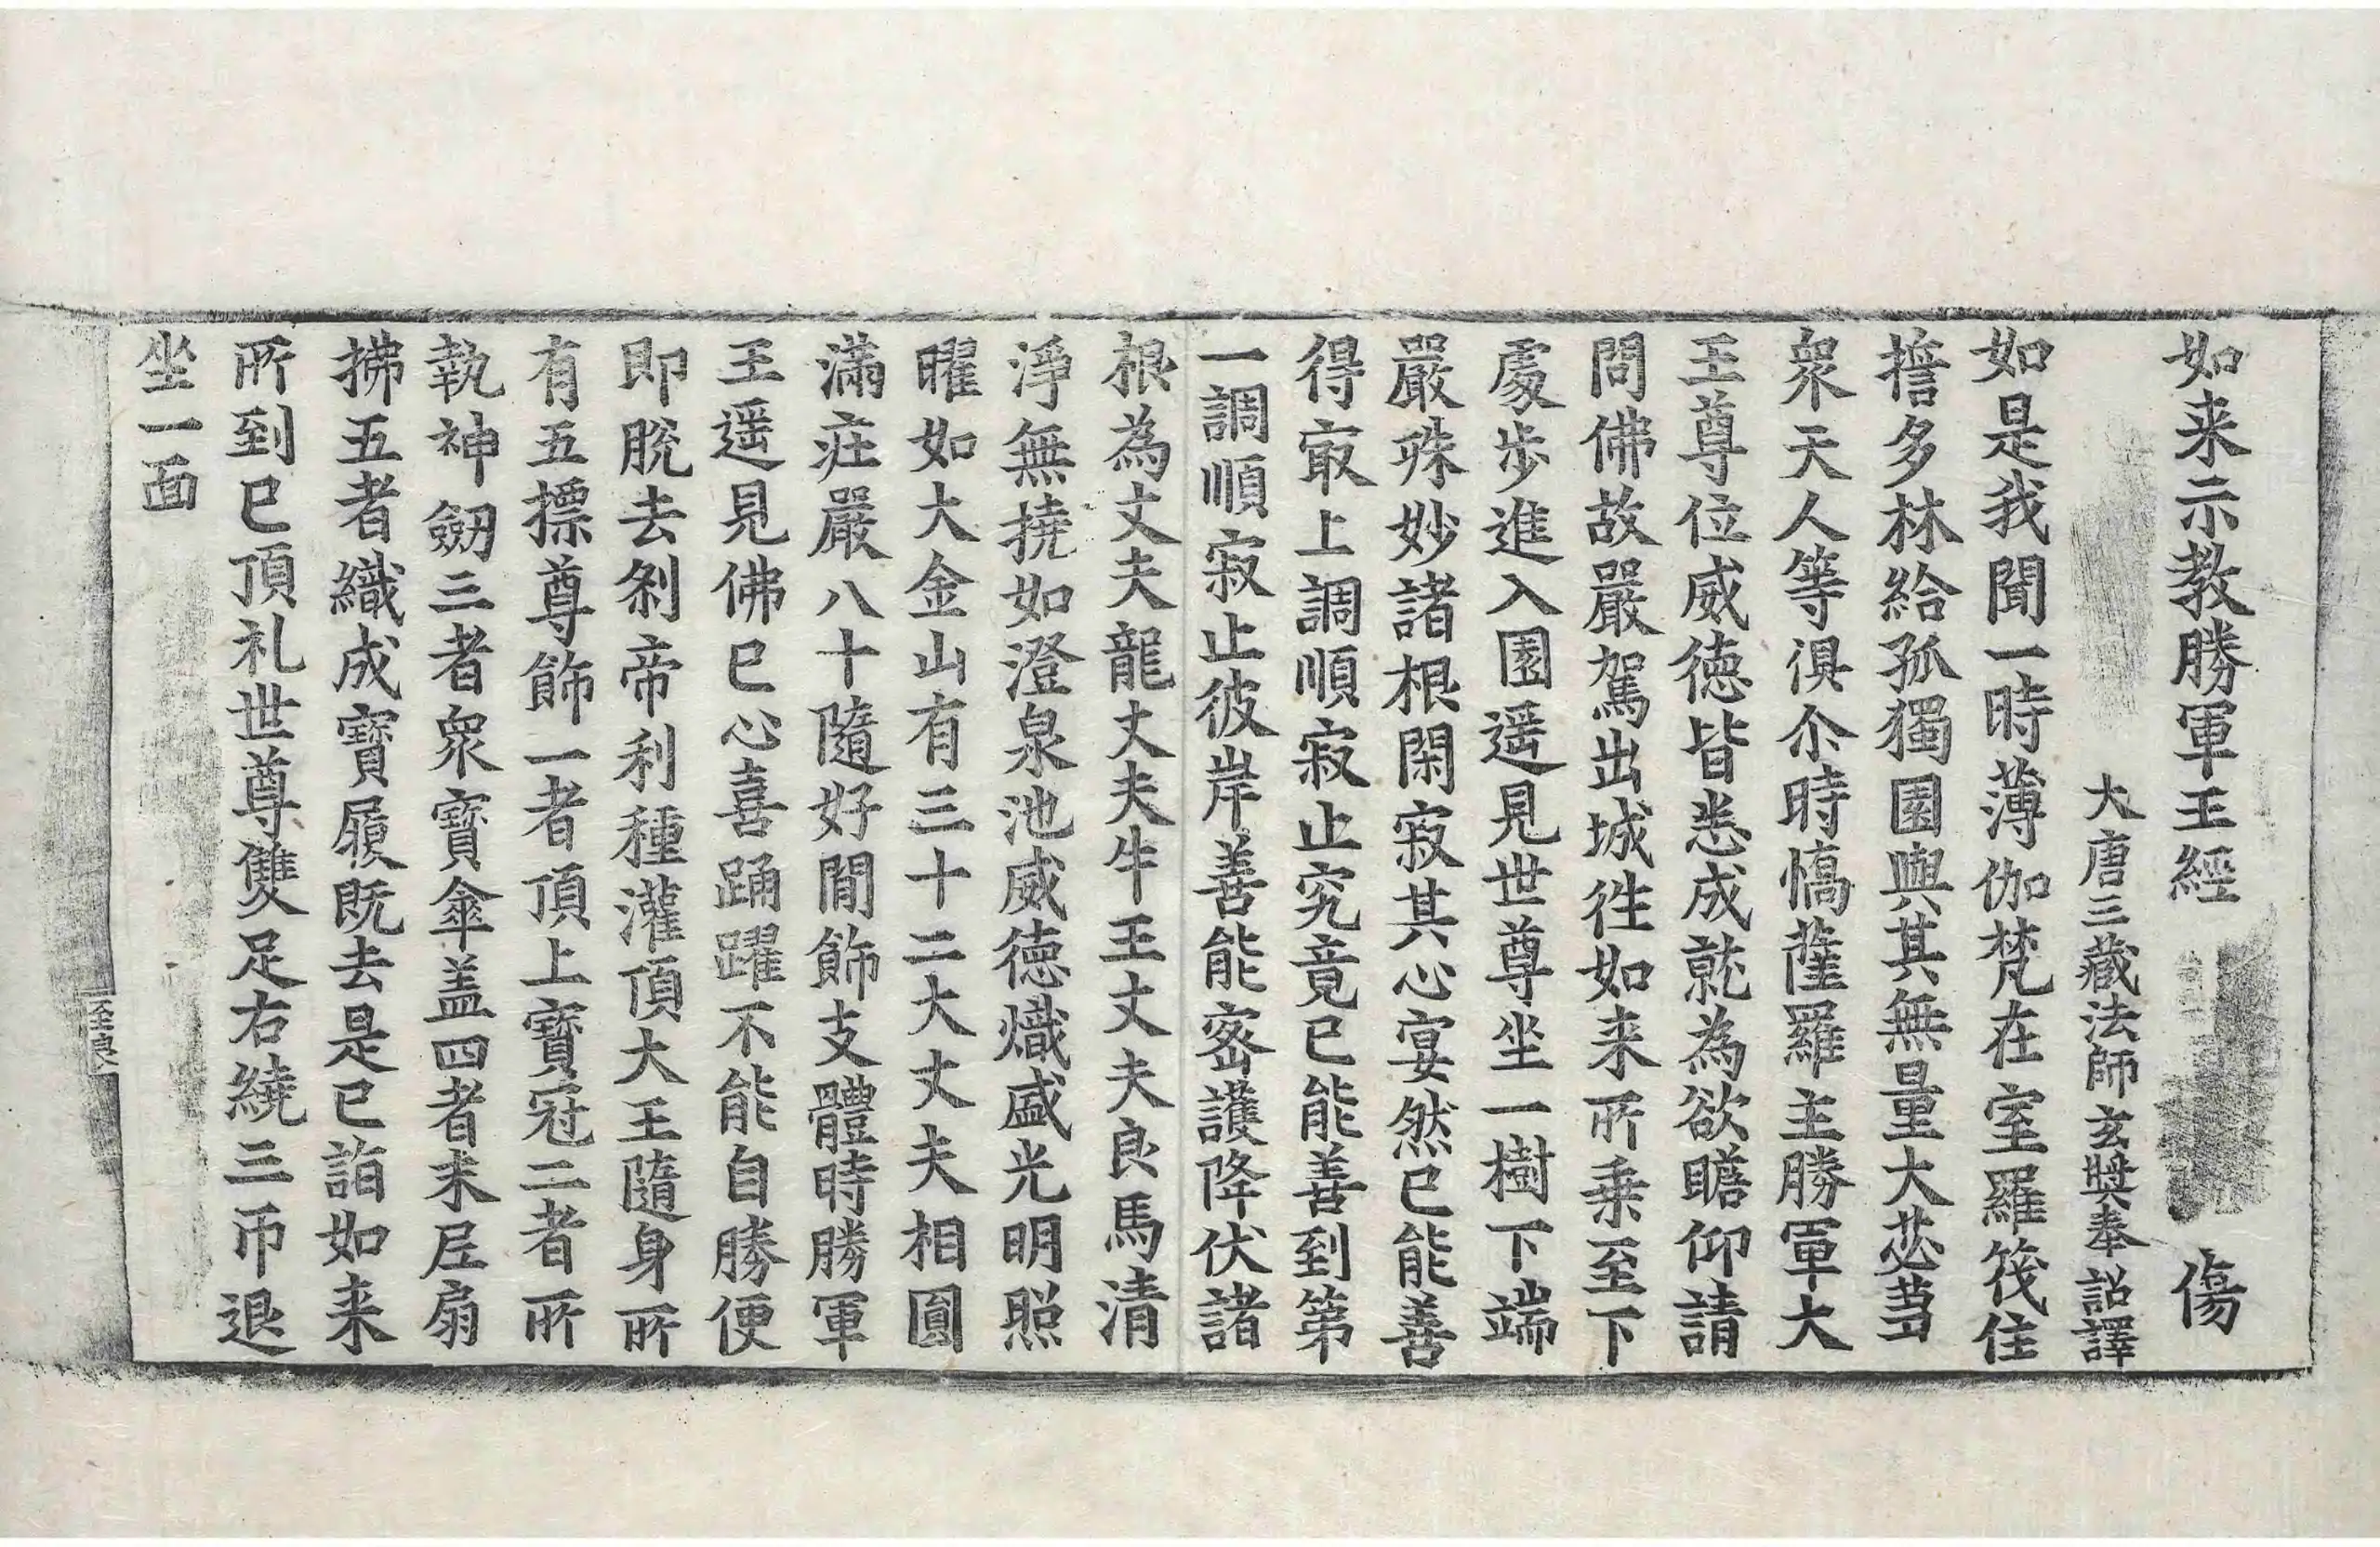 如来示教勝軍王經 傷
大唐三藏法師玄奘奉 詔譯
如是我聞一時薄伽梵在室羅筏住
擔多林給孤獨園與其無量大苾蒭
衆天人等俱尒時憍薩羅主勝軍大
王尊位威徳皆悉成就為欲瞻仰請
問佛故嚴駕出城徃如来所乗至下
處歩進入園遥見世尊坐一樹下端
嚴殊妙諸根閑寂其心宴然已能善
得㝡上調順寂止究竟已能善到第
一調順寂止彼岸善能宻護降伏諸
根為丈夫龍丈夫牛王丈夫良馬清
淨無撓如澄泉池威徳熾盛光明照
曜如大金山有三十二大丈夫相圓
滿莊嚴八十隨好間飾支體時勝軍
王遥見佛已心喜踊躍不能自勝便
即脫去剎帝利種灌頂大王隨身所
有五摽尊飾一者頂上寶冠二者所
執神劒三者衆寶傘盖四者末尼扇
拂五者織成寶履既去是已詣如来
所到已頂礼世尊雙足右繞三帀退
坐一面